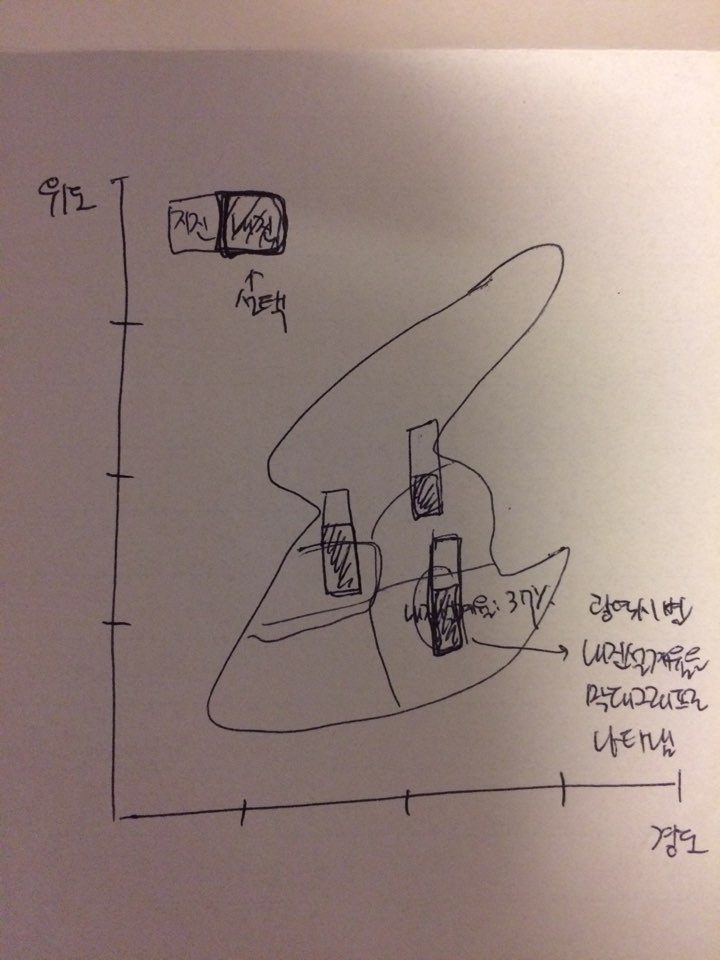 위도
지진 내진
↑
선택
내진설계율: 37%
광역시별
내진설계율을
막대그래프로
나타냄
경도